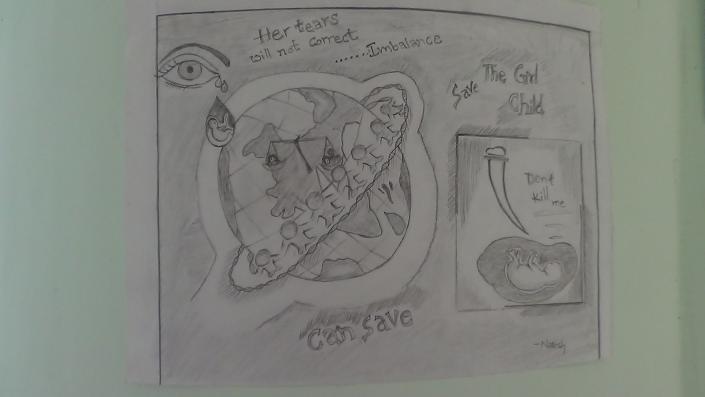 Her tears
will not correct
......Imbalance
Save The Girl
Child
Don't
Kill me
Can Save